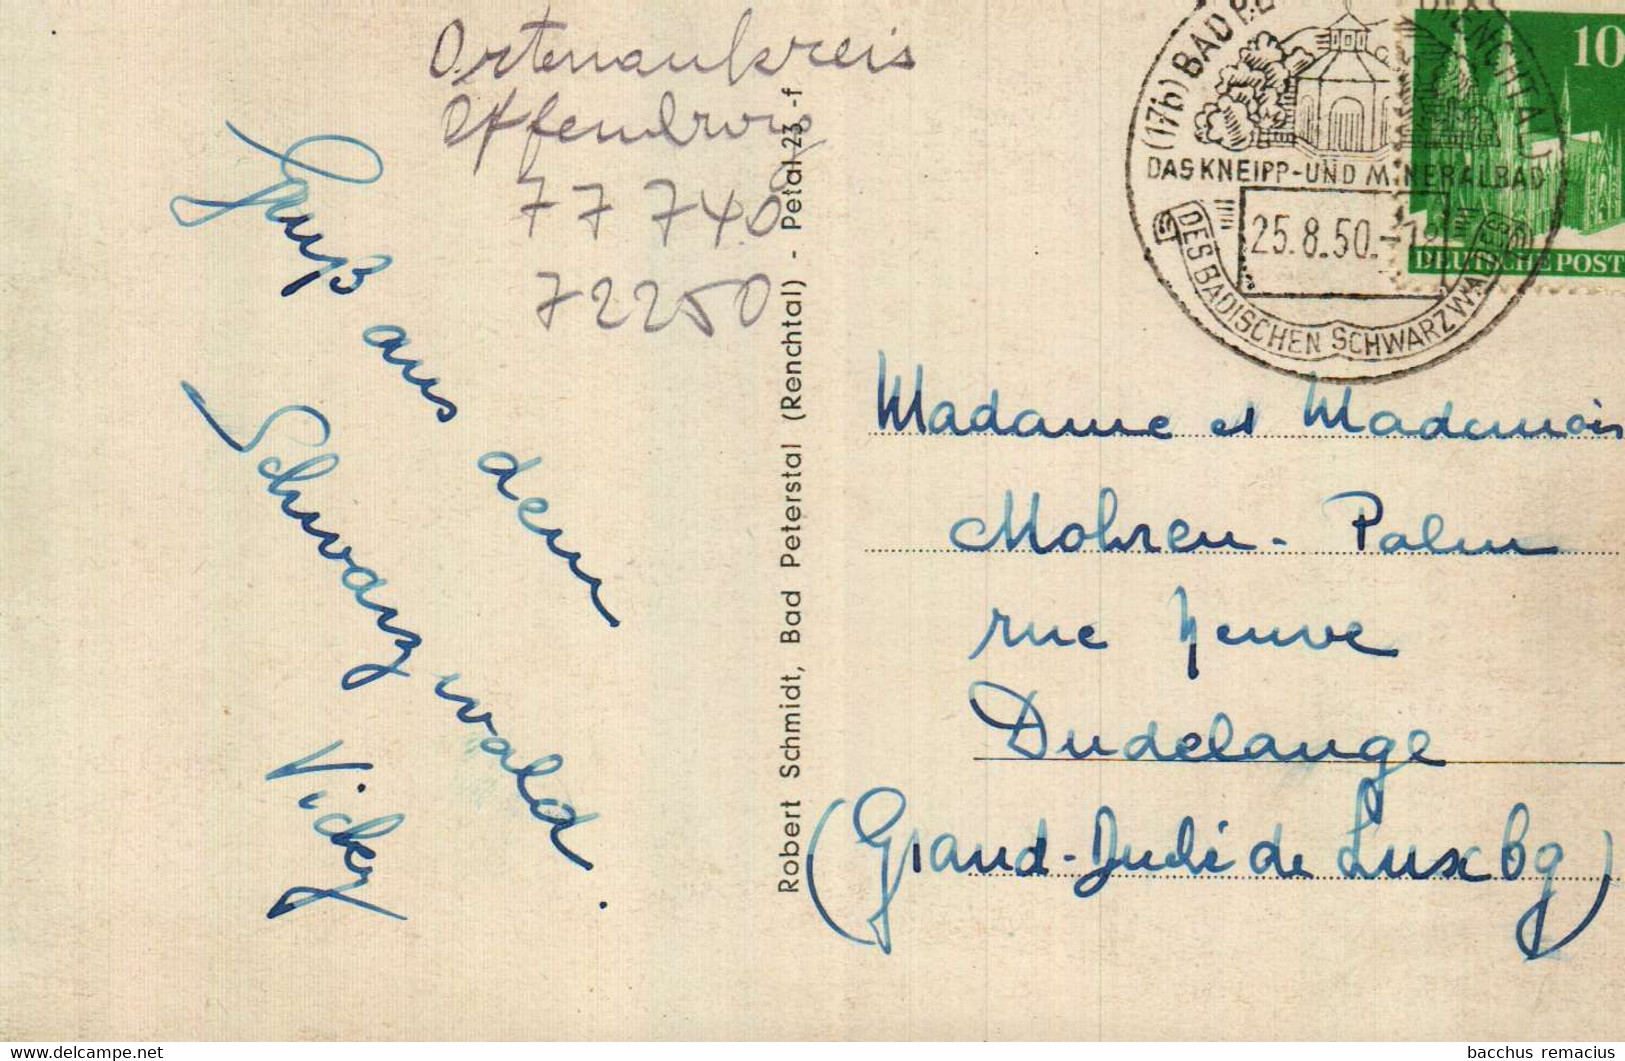 Ortenaukreis
Offenburg
77 740
72250
Gruß aus dem
Schwarzwald.
Vicky
Robert Schmidt, Bad Peterstal (Renchtal) - Petal 23 -f
(17b) BAD
RENCHTAL)
DAS KNEIPP-UND MINERALBAD
25.8.50.
DES BADISCHEN SCHWARZWALDES
10
DEUTSCHE POST
Madame et Mademois
Mohren-Palm
rue Neuve
Dudelange
(Grand-Duché de Luxbg)
bacchus remacius
delcampe.net